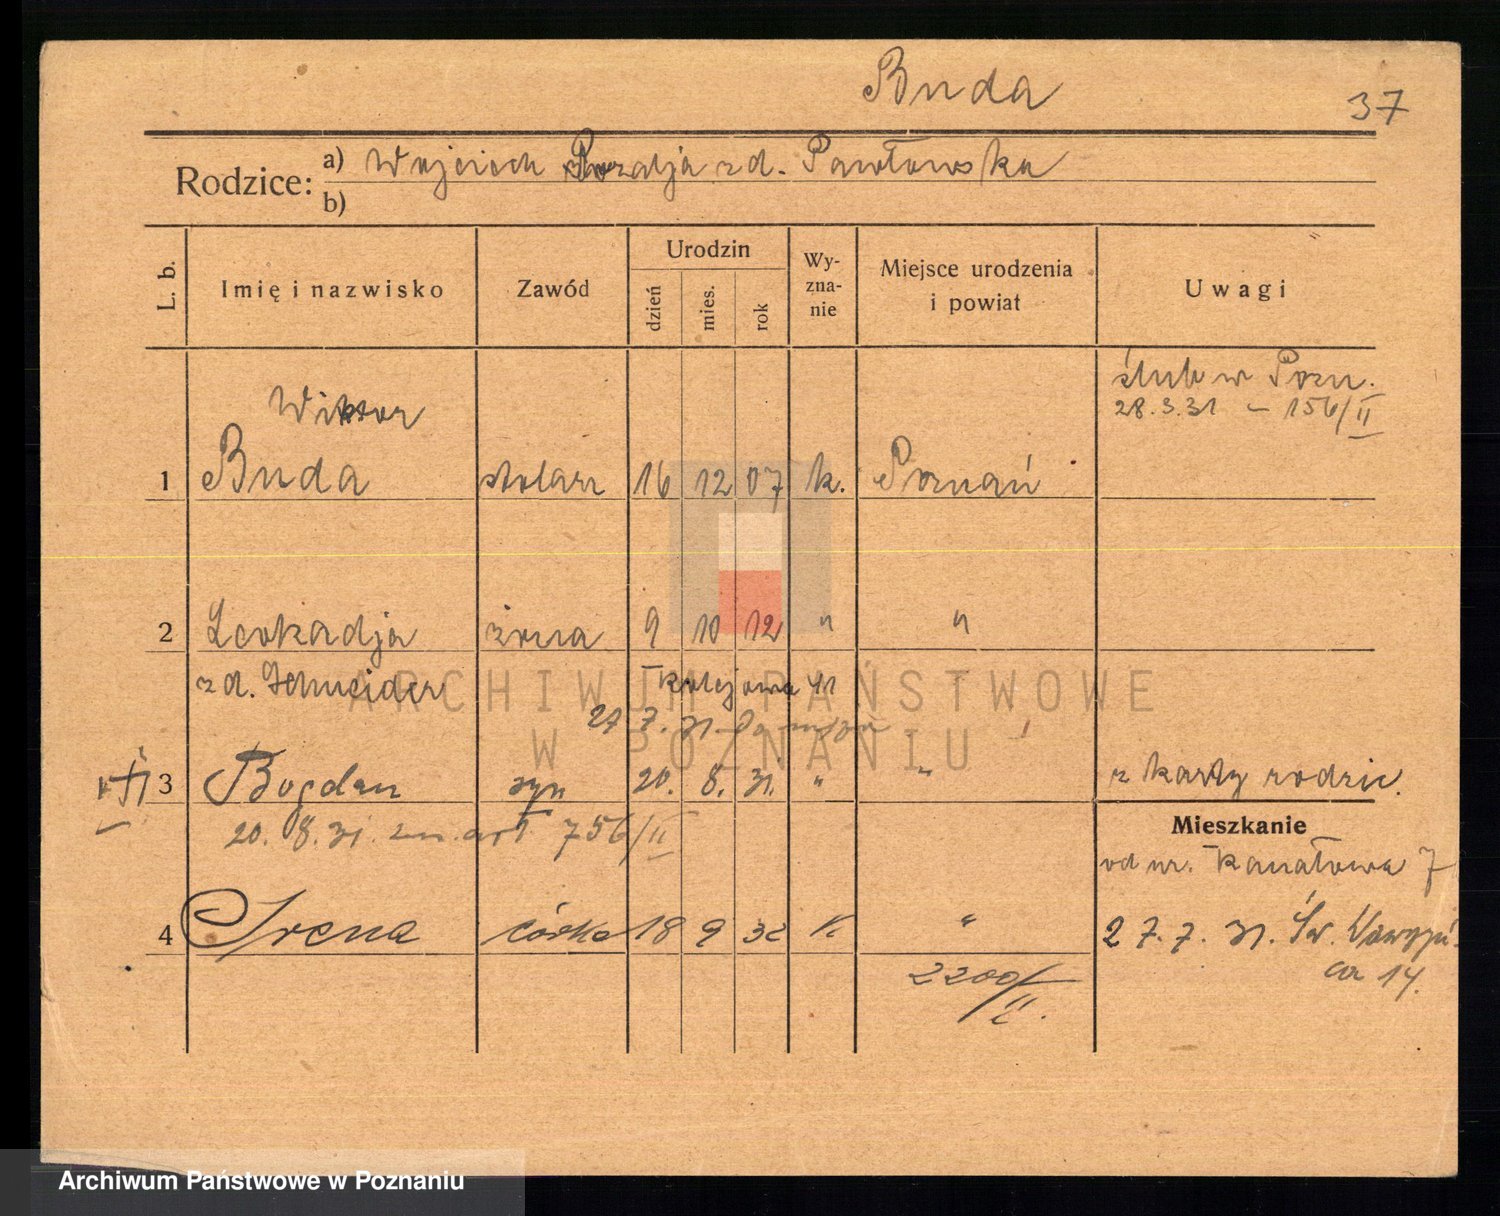 Buda
37
Rodzice: a) Wojciech Rozalja z d. Pawłowska
b)
L. b. Imię i nazwisko Zawód Urodzin dzień mies. rok Wy-zna-nie Miejsce urodzenia i powiat Uwagi
ślub w Pozn.
28.3.31 – 156/II
Wiktor
1 Buda stolarz 16 12 07 k. Poznań
2 Leokadja żona 9 10 12 " "
z d. Schneider Kolejowa 41
27 7. 31.
3 Bogdan syn 20. 8. 31. " " z karty rodzic.
20. 8. 31. zm. akt 756/II
Mieszkanie
od ur. Kanałowa 7
4 Irena córka 18 9 32 k. " 27. 7. 31. Św. Wawrzyń-
ca 14.
2200/II.
ARCHIWUM PAŃSTWOWE
W POZNANIU
Archiwum Państwowe w Poznaniu